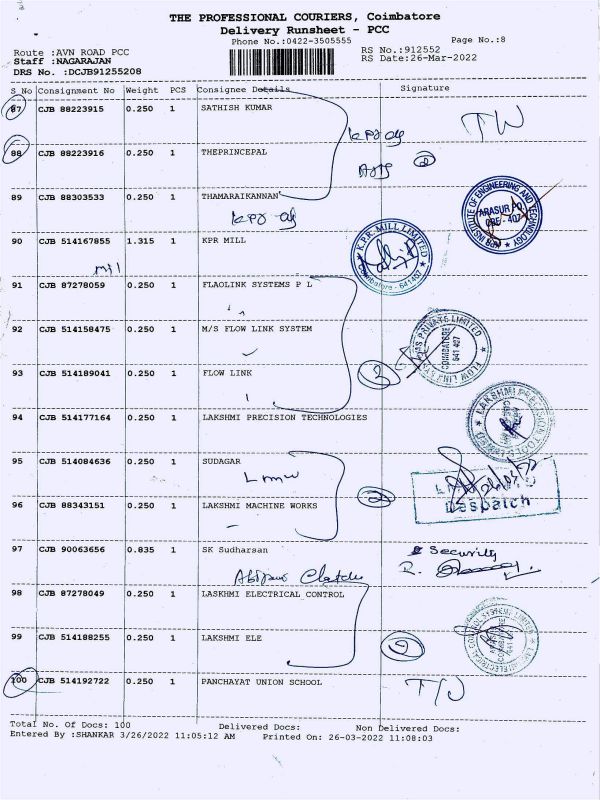 THE PROFESSIONAL COURIERS, Coimbatore
Delivery Runsheet - PCC
Phone No.:0422-3505555 Page No.:8
Route :AVN ROAD PCC RS No.:912552
Staff :NAGARAJAN RS Date:26-Mar-2022
DRS No. :DCJB91255208
S_No Consignment No Weight PCS Consignee Details Signature
87 CJB 88223915 0.250 1 SATHISH KUMAR
88 CJB 88223916 0.250 1 THEPRINCEPAL
89 CJB 88303533 0.250 1 THAMARAIKANNAN
INSTITUTE OF ENGINEERING AND TECHNOLOGY
ARASUR PO
CBE - 407
90 CJB 514167855 1.315 1 KPR MILL
K.P.R. MILL LIMITED
Coimbatore - 641407
91 CJB 87278059 0.250 1 FLAOLINK SYSTEMS P L
92 CJB 514158475 0.250 1 M/S FLOW LINK SYSTEM
PRIVATE LIMITED
COIMBATORE
641 407
FLOW LINK
93 CJB 514189041 0.250 1 FLOW LINK
94 CJB 514177164 0.250 1 LAKSHMI PRECISION TECHNOLOGIES
LAKSHMI PRECISION
95 CJB 514084636 0.250 1 SUDAGAR
Lmw
Despatch
96 CJB 88343151 0.250 1 LAKSHMI MACHINE WORKS
97 CJB 90063656 0.835 1 SK Sudharsan
Security
98 CJB 87278049 0.250 1 LASKHMI ELECTRICAL CONTROL
99 CJB 514188255 0.250 1 LAKSHMI ELE
100 CJB 514192722 0.250 1 PANCHAYAT UNION SCHOOL
Total No. Of Docs: 100 Delivered Docs: Non Delivered Docs:
Entered By :SHANKAR 3/26/2022 11:05:12 AM Printed On: 26-03-2022 11:08:03